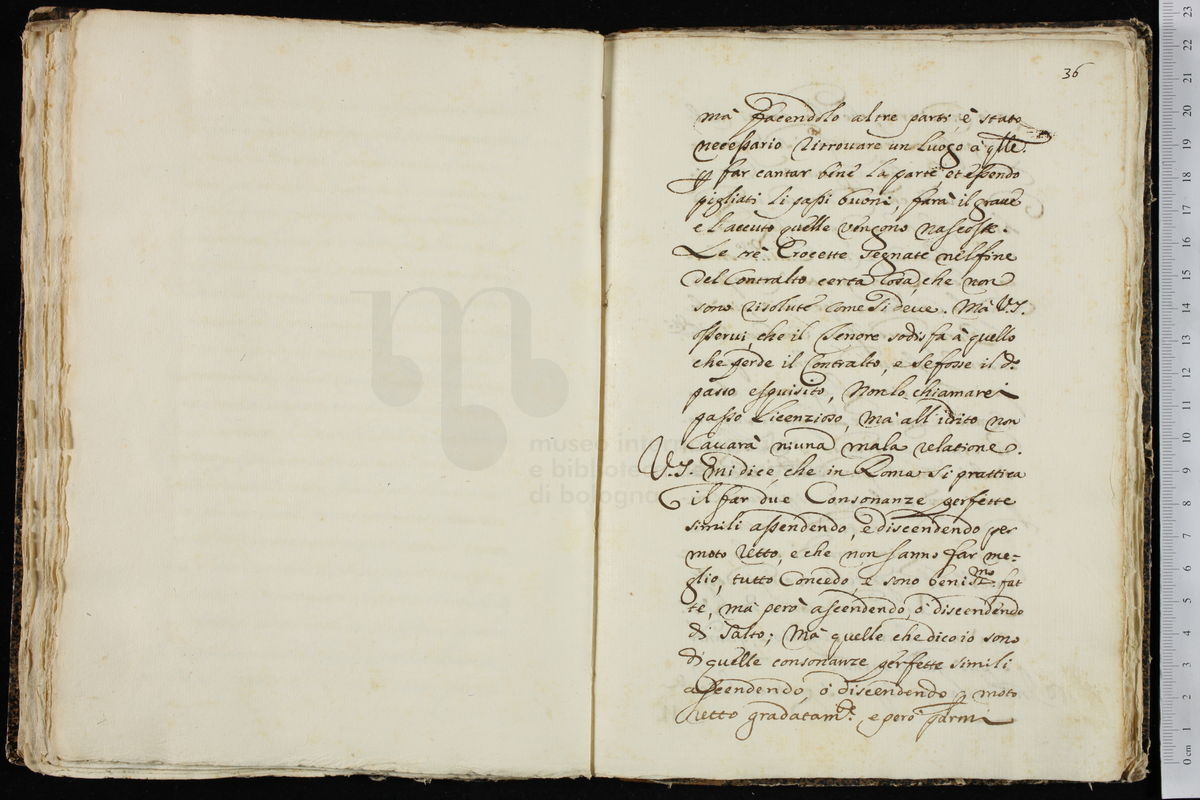 36
mà facendolo altre parti, è stato
necessario ritrouare un luogo à q.lle
p far cantar bene la parte, et essendo
pigliati li passi buoni, farà il graue
e l'accuto quelle vengono nascoste.
Le trè Crocette segnate nel fine
del Contralto certa cosa, che non
sono risolute come si deue. Mà V.S.
osserui, che il Tenore sodisfa à quello
che perde il Contralto, e se fosse il d.o
passo esquisito, non lo chiamarei
passo licenzioso, mà all'udito non
cauarà niuna mala relatione.
V.S. mi dice, che in Roma si prattica
il far due Consonanze perfette
simili assendendo, e discendendo per
moto retto, e che non sanno far me=
glio, tutto Concedo, e sono beniss.mo fat
te, mà però ascendendo, ò discendendo
di salto; Mà quelle che dico io sono
di quelle consonanze perfette simili
assendendo, ò discendendo p moto
retto gradatam.te, e però parmi
museo inter
e bibliote
di bologna
0 cm 1 2 3 4 5 6 7 8 9 10 11 12 13 14 15 16 17 18 19 20 21 22 23